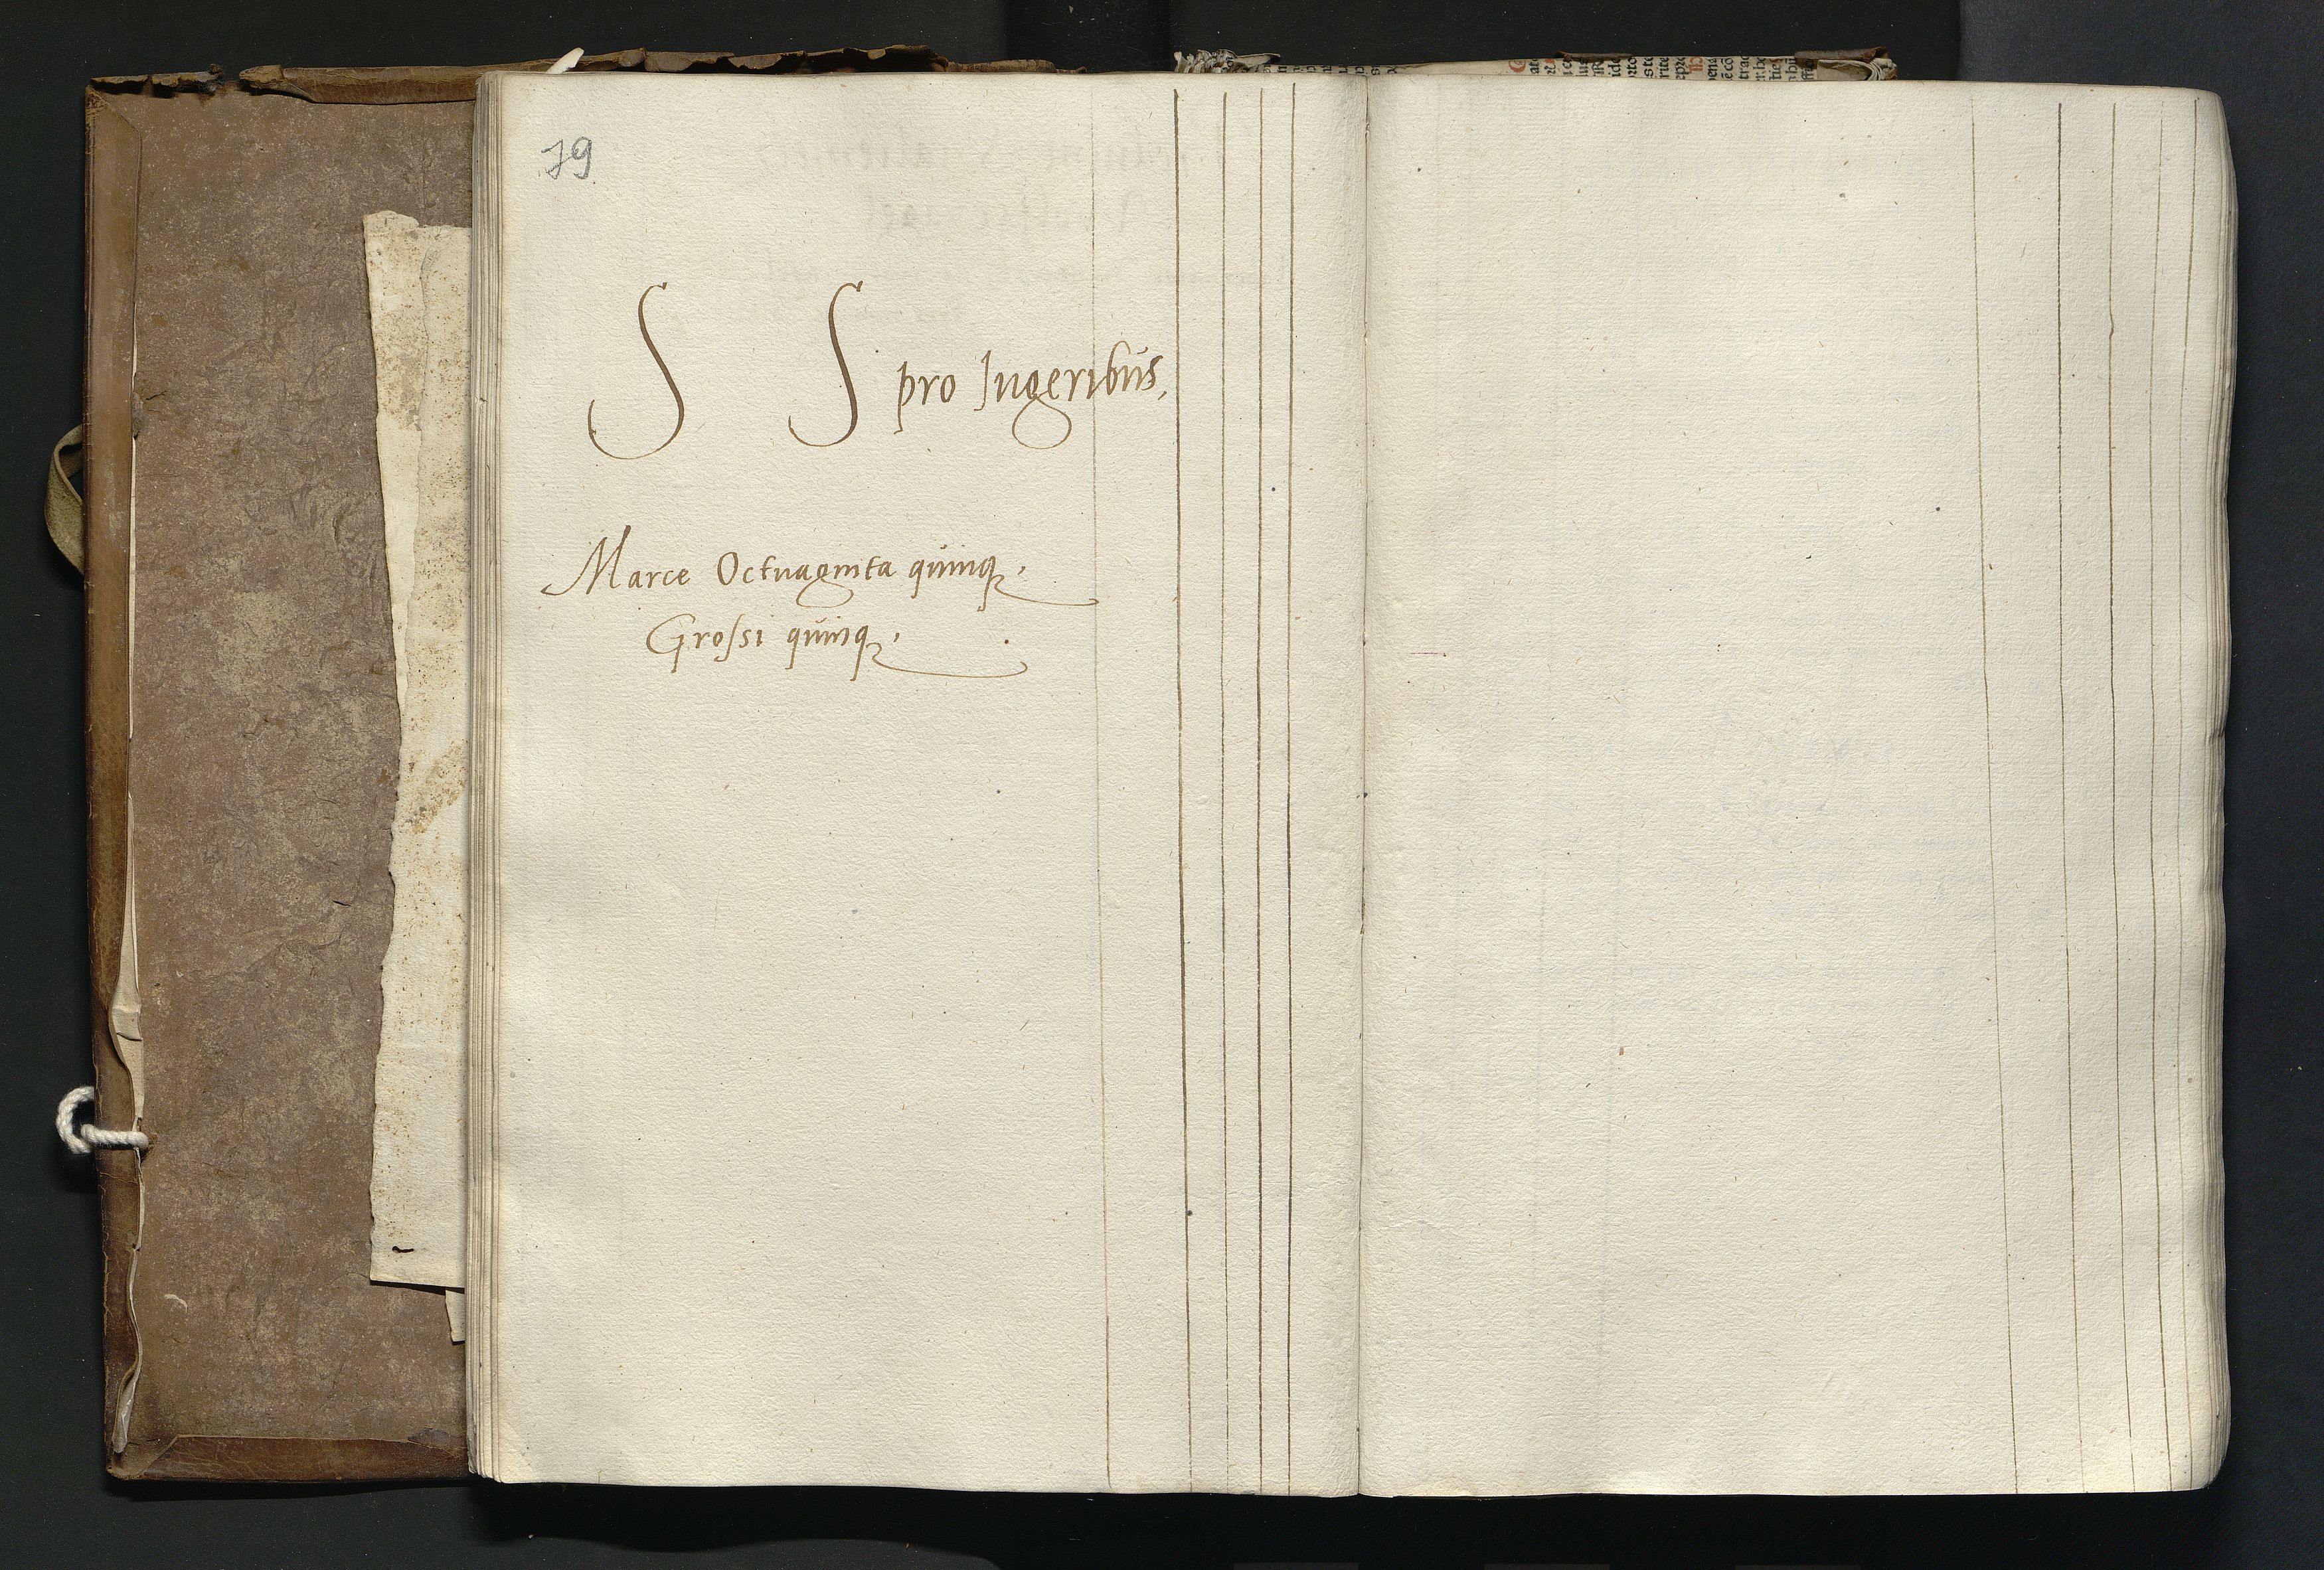 79
S S pro Jugeribus,
Marce Octuaginta quinq,
Grossi quinq,